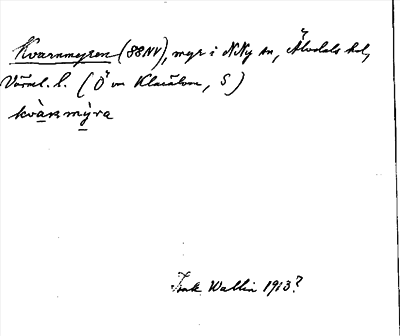 Kvarnmyren (88NV), myr i N Ny sn, Älvdals hd,
Värml. l. (Ö om Klarälven, S)
kvàɳmỳra
Isak Wallin 1913?